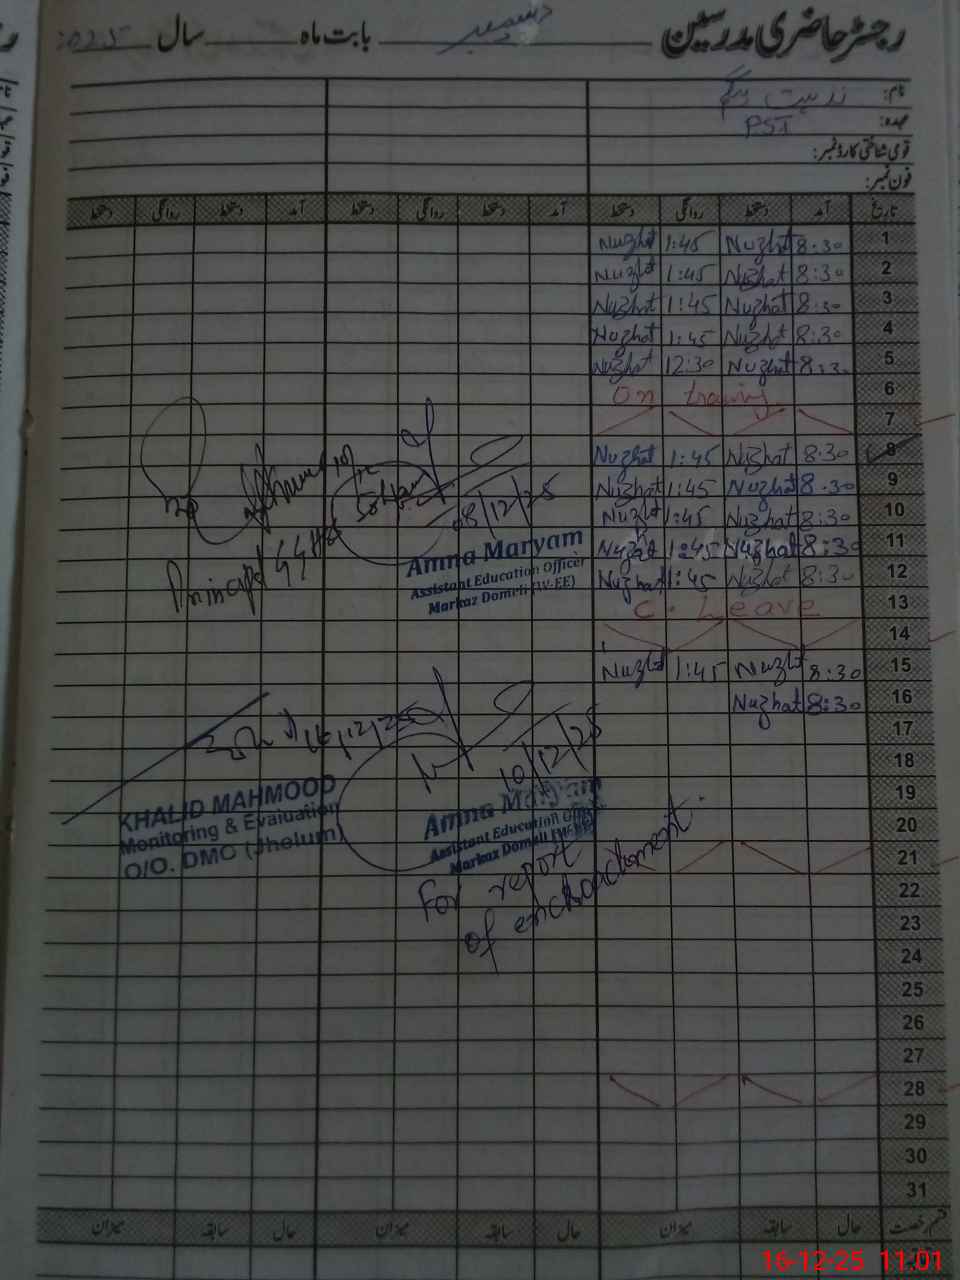 رجسٹر حاضری مدرسین بابت ماہ دسمبر سال
نام:
عہدہ: PST
قومی شناختی کارڈ نمبر:
فون نمبر:
تاریخ آمد دستخط روانگی دستخط آمد دستخط روانگی دستخط آمد دستخط روانگی دستخط
1 8:30 Nuzhat 1:45 Nuzhat
2 8:30 Nuzhat 1:45 Nuzht
3 8:30 Nuzhat 1:45 Nuzhat
4 8:30 Nuzhat 1:45 Nuzhat
5 8:30 Nuzhat 12:30 Nuzhat
6 On training
7
8 8:30 Nuzhat 1:45 Nuzhat
9 8:30 Nuzhat 1:45 Nuzhat
10 8:30 Nuzhat 1:45 Nuzht
11 8:30 Nuzhat 1:45 Nuzhat
12 8:30 Nuzhat 1:45 Nuzhat
13 C. Leave
14
15 8:30 Nuzht 1:45 Nuzht
16 8:30 Nuzhat
17
18
19
20
21
22
23
24
25
26
27
28
29
30
31
08/12/25
Amna Maryam
Assistant Education Officer
Markaz Domeli (W-EE)
Principal
16/12/25
KHALID MAHMOOD
Monitoring & Evaluation
O/O. DMO (Jhelum)
10/12/25
Amna Maryam
Assistant Education Officer
Markaz Domeli (W-EE)
For report
of encroachment.
قسم رخصت حال سابقہ میزان حال سابقہ میزان حال سابقہ میزان
16-12-25 11:01